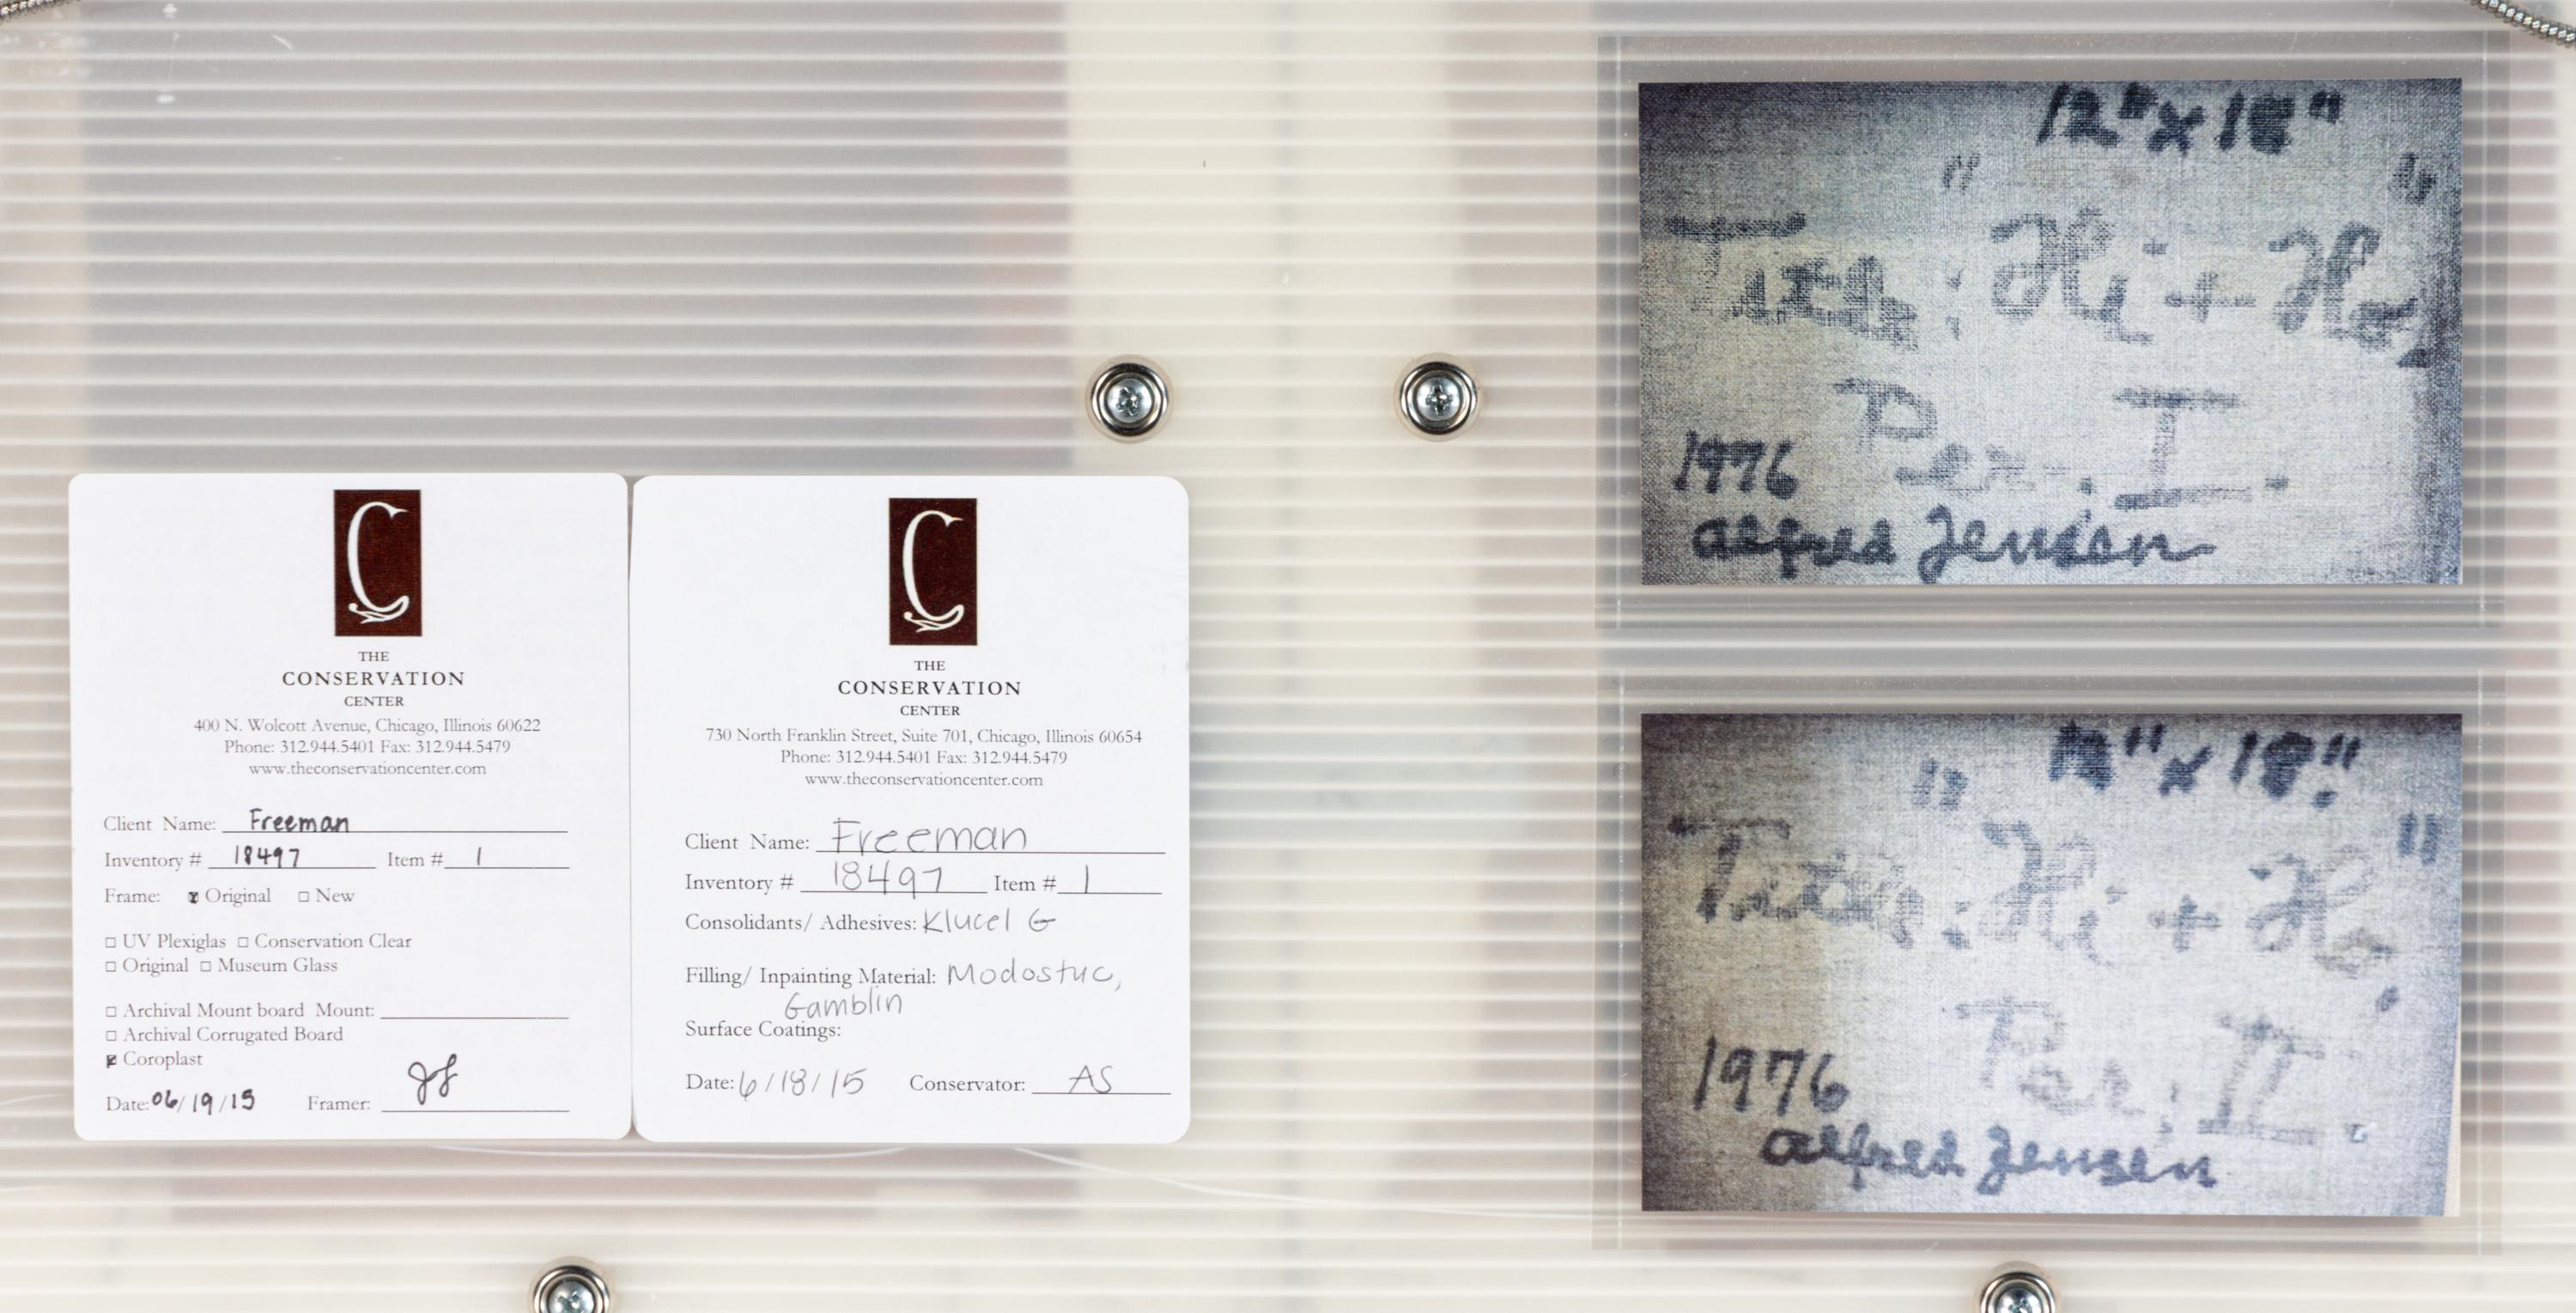 C
THE
CONSERVATION
CENTER
400 N. Wolcott Avenue, Chicago, Illinois 60622
Phone: 312.944.5401 Fax: 312.944.5479
www.theconservationcenter.com
Client Name: Freeman
Inventory # 18497 Item # 1
Frame: Original New
UV Plexiglas Conservation Clear
Original Museum Glass
Archival Mount board Mount:
Archival Corrugated Board
Coroplast
Date: 06/19/15 Framer:
C
THE
CONSERVATION
CENTER
730 North Franklin Street, Suite 701, Chicago, Illinois 60654
Phone: 312.944.5401 Fax: 312.944.5479
www.theconservationcenter.com
Client Name: Freeman
Inventory # 18497 Item # 1
Consolidants/ Adhesives: Klucel G
Filling/ Inpainting Material: Modostuc,
Gamblin
Surface Coatings:
Date: 6/18/15 Conservator: AS
12" x 18"
Title: "Hi + Ho,"
Per. I.
1976
alfred Jensen
12" x 18."
Title: "Hi + Ho,"
Per. II.
1976
alfred Jensen